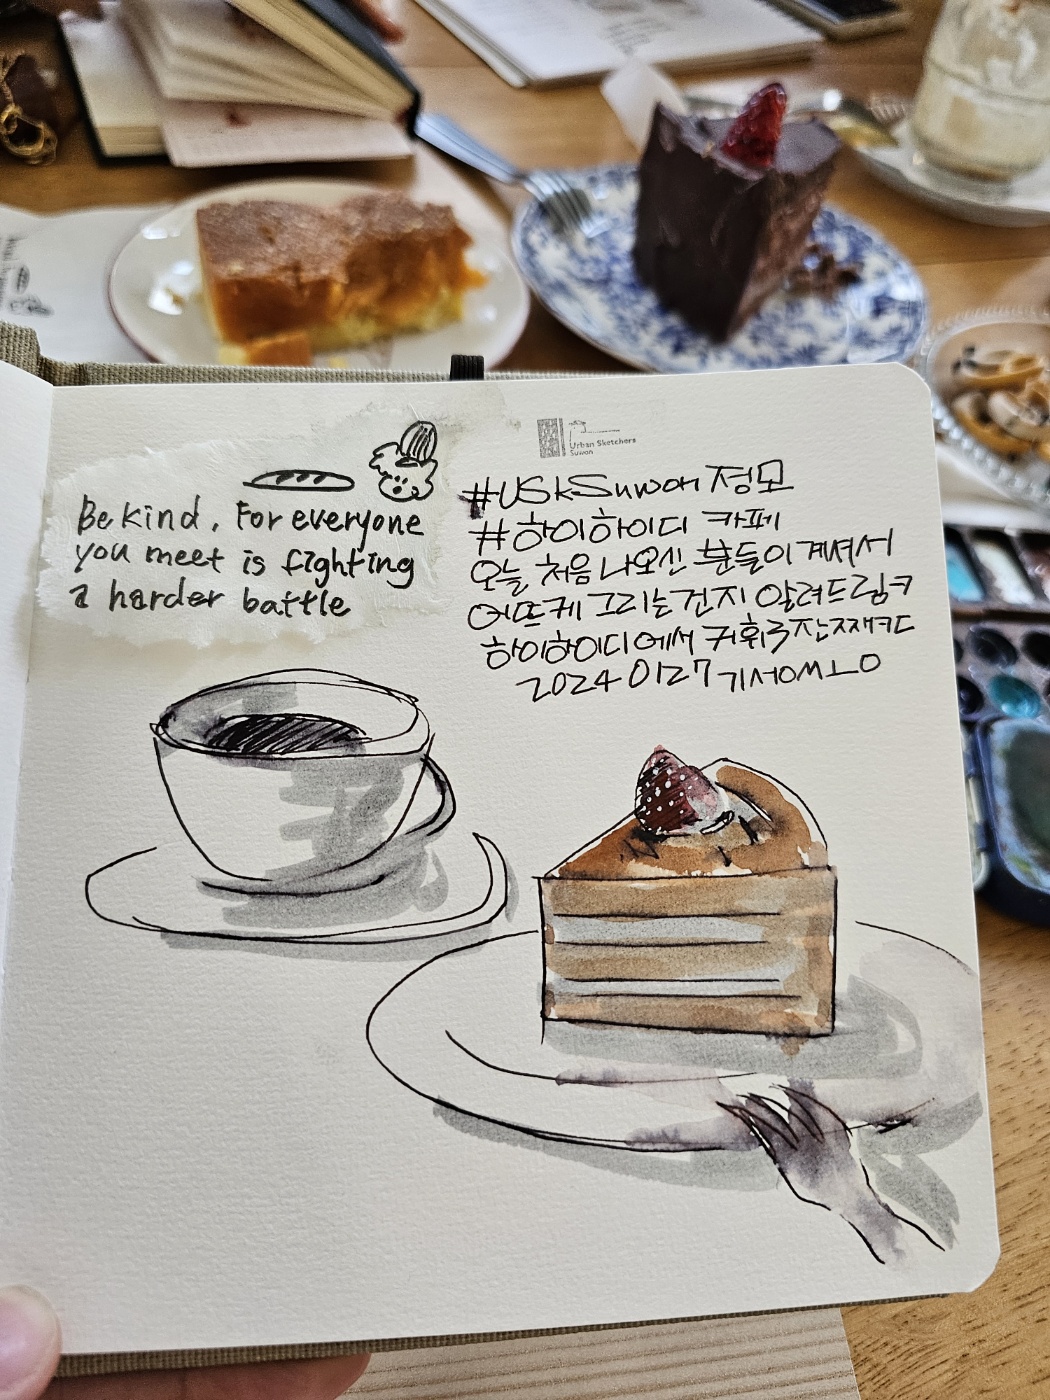 Be kind, For everyone
you meet is fighting
a harder battle
Urban Sketchers
Suwon
#USkSuwon 정모
#하이하이디 카페
오늘 처음 나오신 분들이 계셔서
어뜨케 그리는건지 알려드림ㅋ
하이하이디에서
20240127